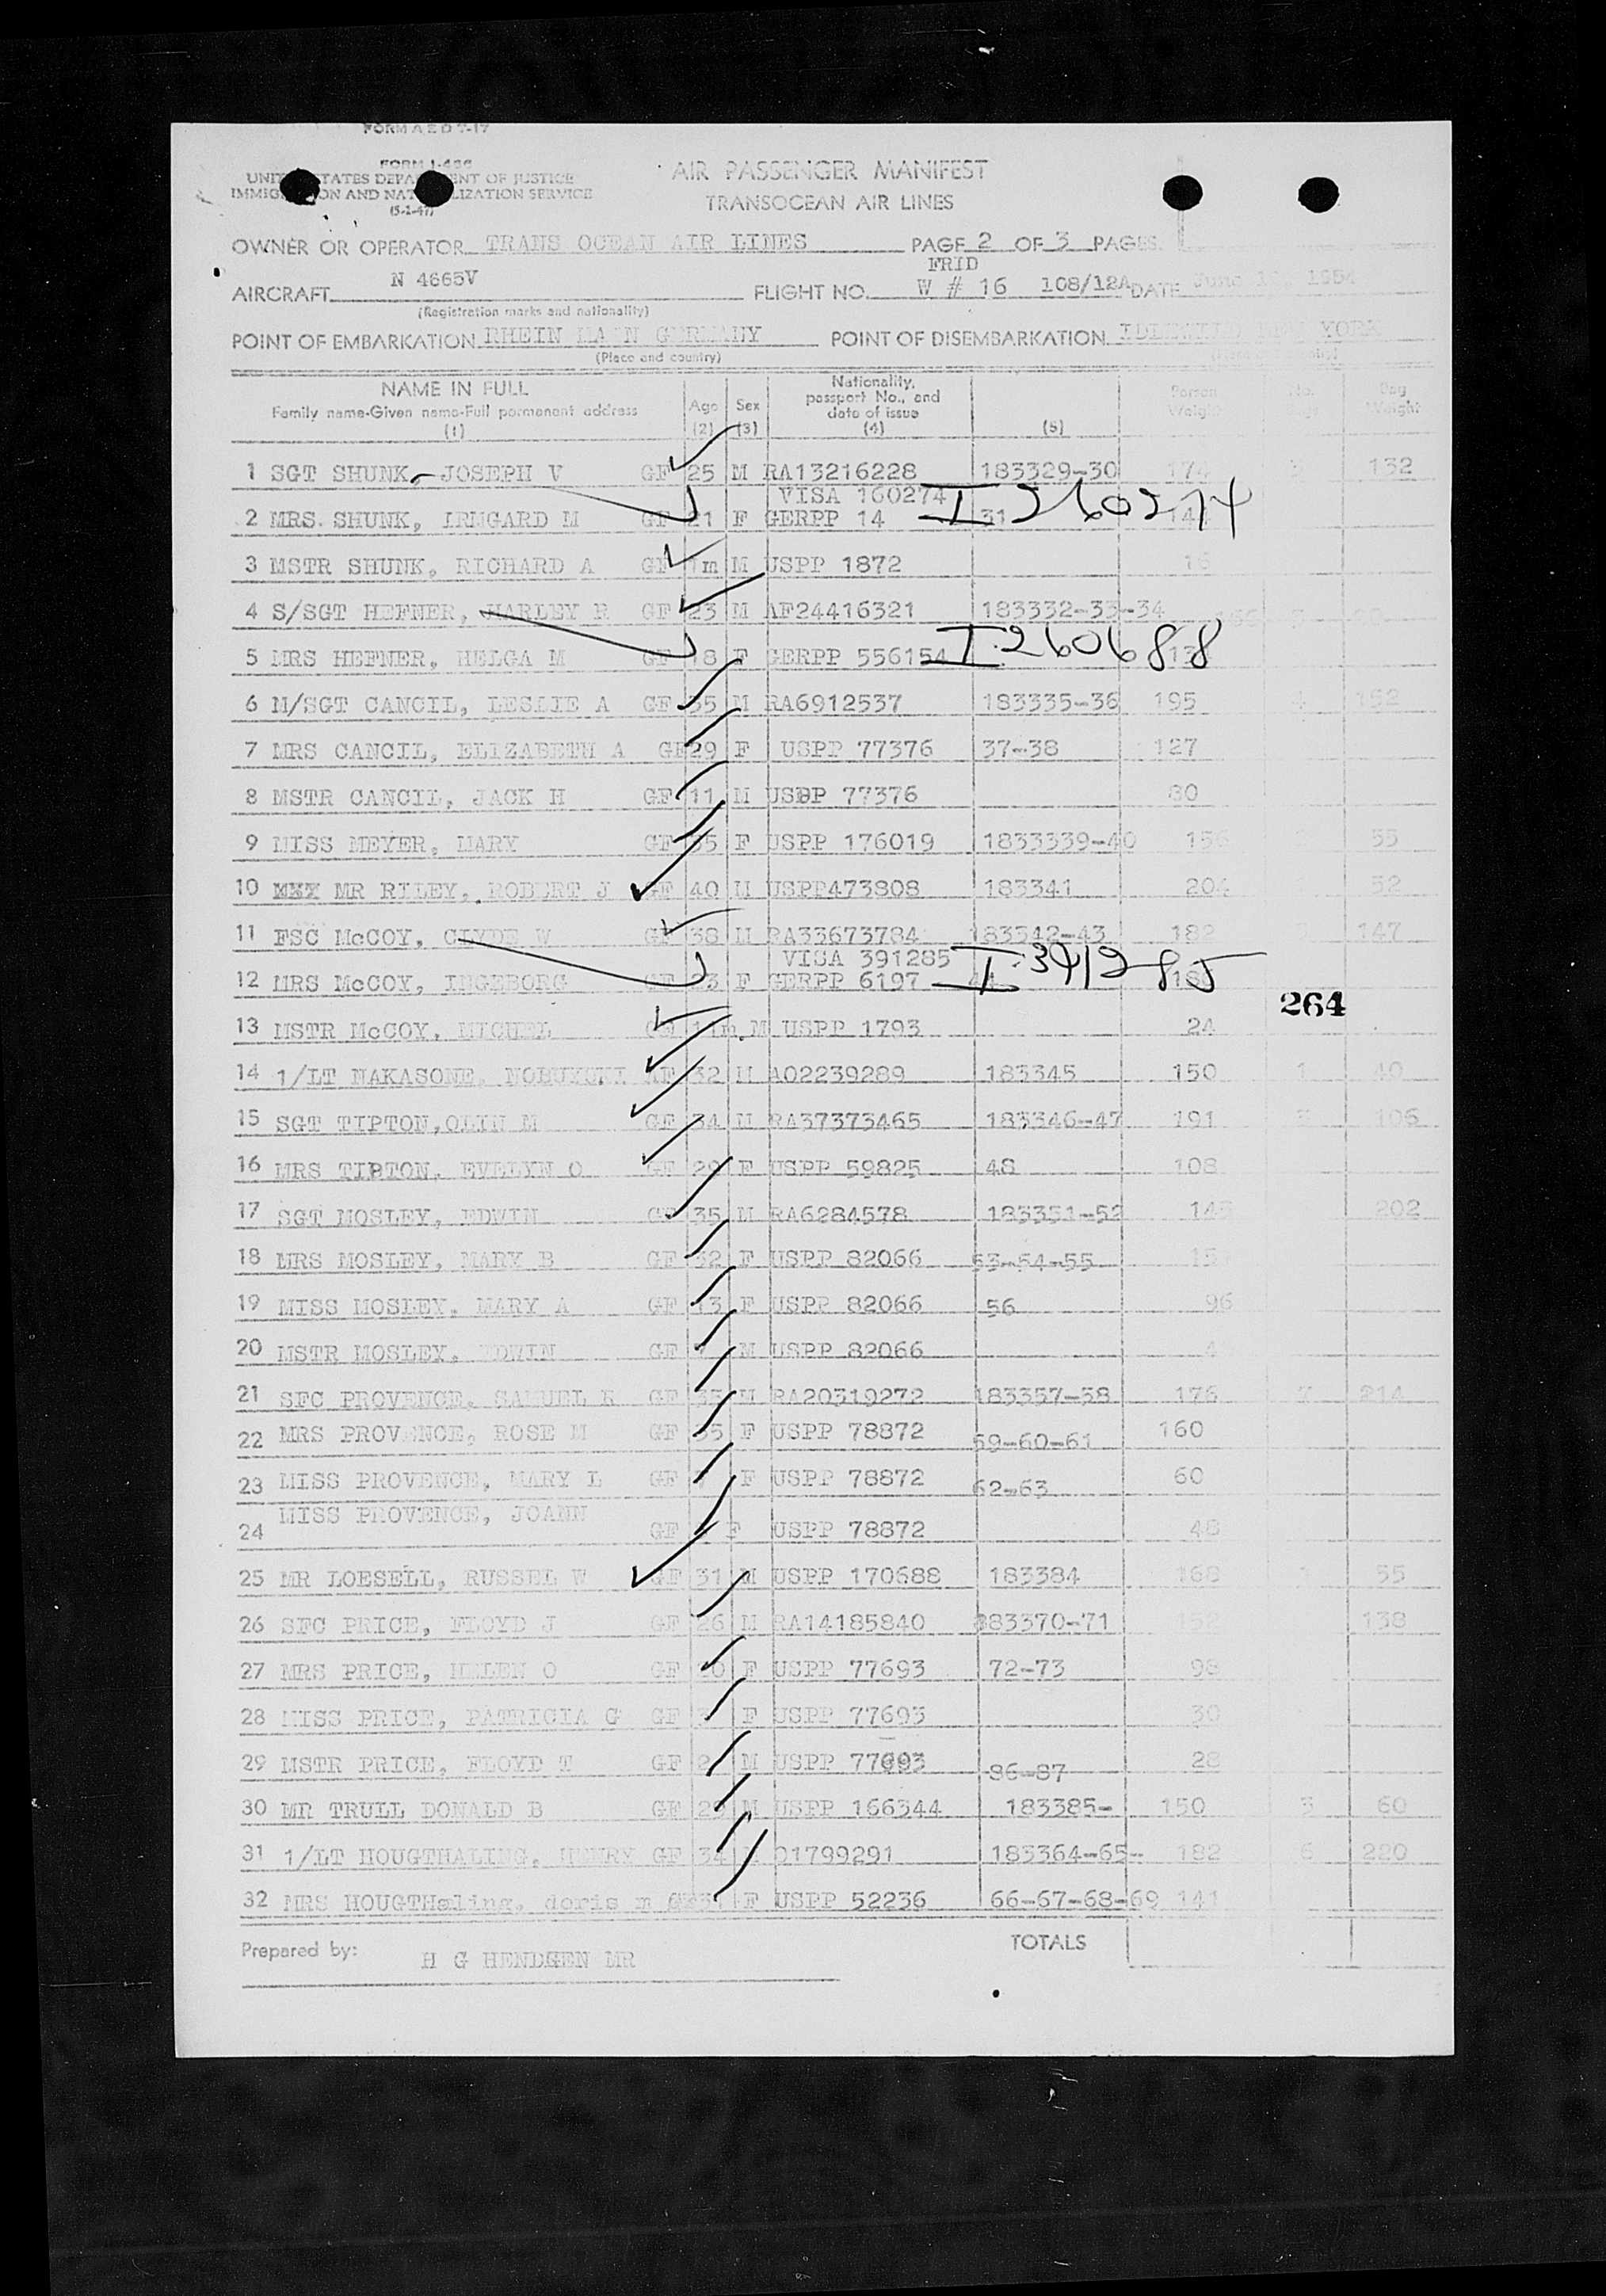 FORM A E D 7-17
FORM I-466
UNITED STATES DEPARTMENT OF JUSTICE
IMMIGRATION AND NATURALIZATION SERVICE
(5-1-47)
AIR PASSENGER MANIFEST
TRANSOCEAN AIR LINES
OWNER OR OPERATOR TRANS OCEAN AIR LINES PAGE 2 OF 3 PAGES
FRID
AIRCRAFT N 4665V FLIGHT NO. W # 16 108/12A DATE June 1954
(Registration marks and nationality)
POINT OF EMBARKATION RHEIN MAIN GERMANY POINT OF DISEMBARKATION IDLEWILD NEW YORK
(Place and country)
NAME IN FULL Age Sex Nationality, passport No., and date of issue Person Weight No. Bag Weight
Family name-Given name-Full permanent address
(1) (2) (3) (4) (5)
1 SGT SHUNK, JOSEPH V GF 25 M RA13216228 183329-30 174 3 132
VISA 160274 I 260274
2 MRS. SHUNK, IRMGARD M GF 21 F GERPP 14 31
3 MSTR SHUNK, RICHARD A GF 1m M USPP 1872 16
4 S/SGT HEFNER, HARLEY R GF 23 M AF24416321 183332-33-34
5 MRS HEFNER, HELGA M GF 18 F GERPP 556154 I 260688
6 M/SGT CANCIL, LESLIE A GF 35 M RA6912537 183335-36 195 4 152
7 MRS CANCIL, ELIZABETH A GF 29 F USPP 77376 37-38 127
8 MSTR CANCIL, JACK H GF 11 M USPP 77376 80
9 MISS MEYER, MARY GF 35 F USPP 176019 1833339-40 156 55
10 MR RILEY, ROBERT J GF 40 M USPP473808 183341 204 52
11 FSC McCOY, CLYDE W GF 38 M RA33673784 183342-43 182 147
VISA 391285 I 391285
12 MRS McCOY, INGEBORG GF 23 F GERPP 6197
264
13 MSTR McCOY, MICHEL GF M USPP 1793 24
14 1/LT NAKASONE, NOBUYUKI GF 32 M AO2239289 183345 150 1 40
15 SGT TIPTON,OLIN M GF 34 M RA37373465 183346-47 191 3 106
16 MRS TIPTON, EVELYN O GF 29 F USPP 59825 48 108
17 SGT MOSLEY, EDWIN GF 35 M RA6284578 183351-52 202
18 MRS MOSLEY, MARY B GF 32 F USPP 82066 53-54-55
19 MISS MOSLEY, MARY A GF 13 F USPP 82066 56 96
20 MSTR MOSLEY, EDWIN GF M USPP 82066
21 SFC PROVENCE, SAMUEL R GF 35 M RA20319272 183357-58 176 7 214
22 MRS PROVENCE, ROSE M GF 35 F USPP 78872 59-60-61 160
23 MISS PROVENCE, MARY L GF F USPP 78872 62-63 60
24 MISS PROVENCE, JOANN GF F USPP 78872 48
25 MR LOESELL, RUSSEL W GF 31 M USPP 170688 183384 168 1 55
26 SFC PRICE, FLOYD J GF 26 M RA14185840 183370-71 152 138
27 MRS PRICE, HELEN O GF 20 F USPP 77693 72-73 98
28 MISS PRICE, PATRICIA G GF F USPP 77693 30
29 MSTR PRICE, FLOYD T GF 2 M USPP 77693 86-87 28
30 MR TRULL DONALD B GF M USPP 166344 183385- 150 3 60
31 1/LT HOUGTHALING, HENRY GF 34 O1799291 183364-65- 182 6 220
32 MRS HOUGTHaling, doris m F USPP 52236 66-67-68-69 141
Prepared by: H G HENDGEN MR TOTALS